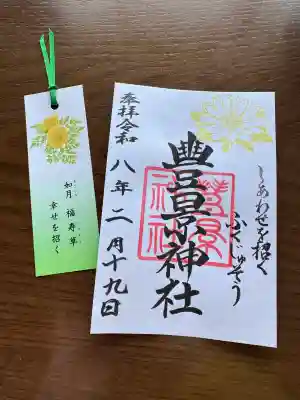 如月 福寿草
幸せを招く
しあわせを招く
ふくじゅそう
豊景神社
豊景神社
奉拝令和
八年二月十九日